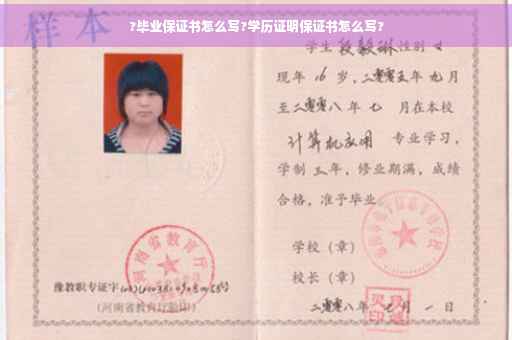 ?毕业保证书怎么写?学历证明保证书怎么写?
样本
学生 段毅琳 性别 女
现年 16 岁，二零零五年 九 月
至二零零八年 七 月在本校
计算机应用 专业学习，
学制 三 年，修业期满，成绩
合格，准予毕业
学校（章）
校长（章）
二零零八年 七 月 一 日
河南省教育厅
豫教职专证字
（河南省教育厅验印）